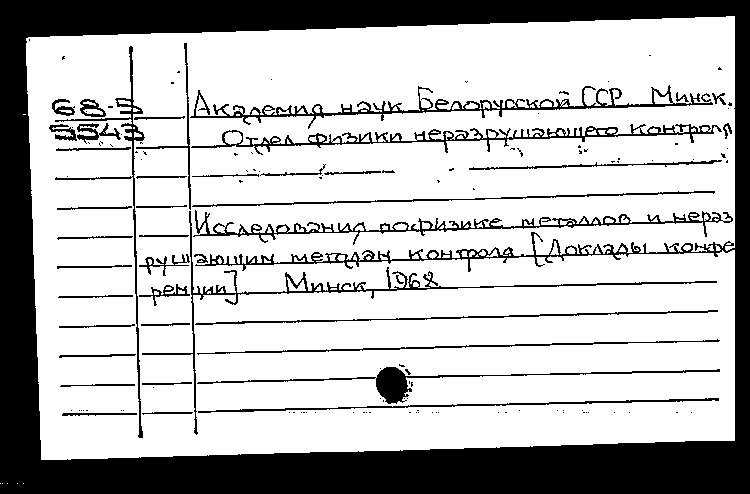 68-5 Академия наук Белорусской ССР Минск.
5543 Отдел физики неразрушающего контроля
Исследования по физике металлов и нераз
рушающим методам контроля. [Доклады конфе
ренции]. Минск, 1968